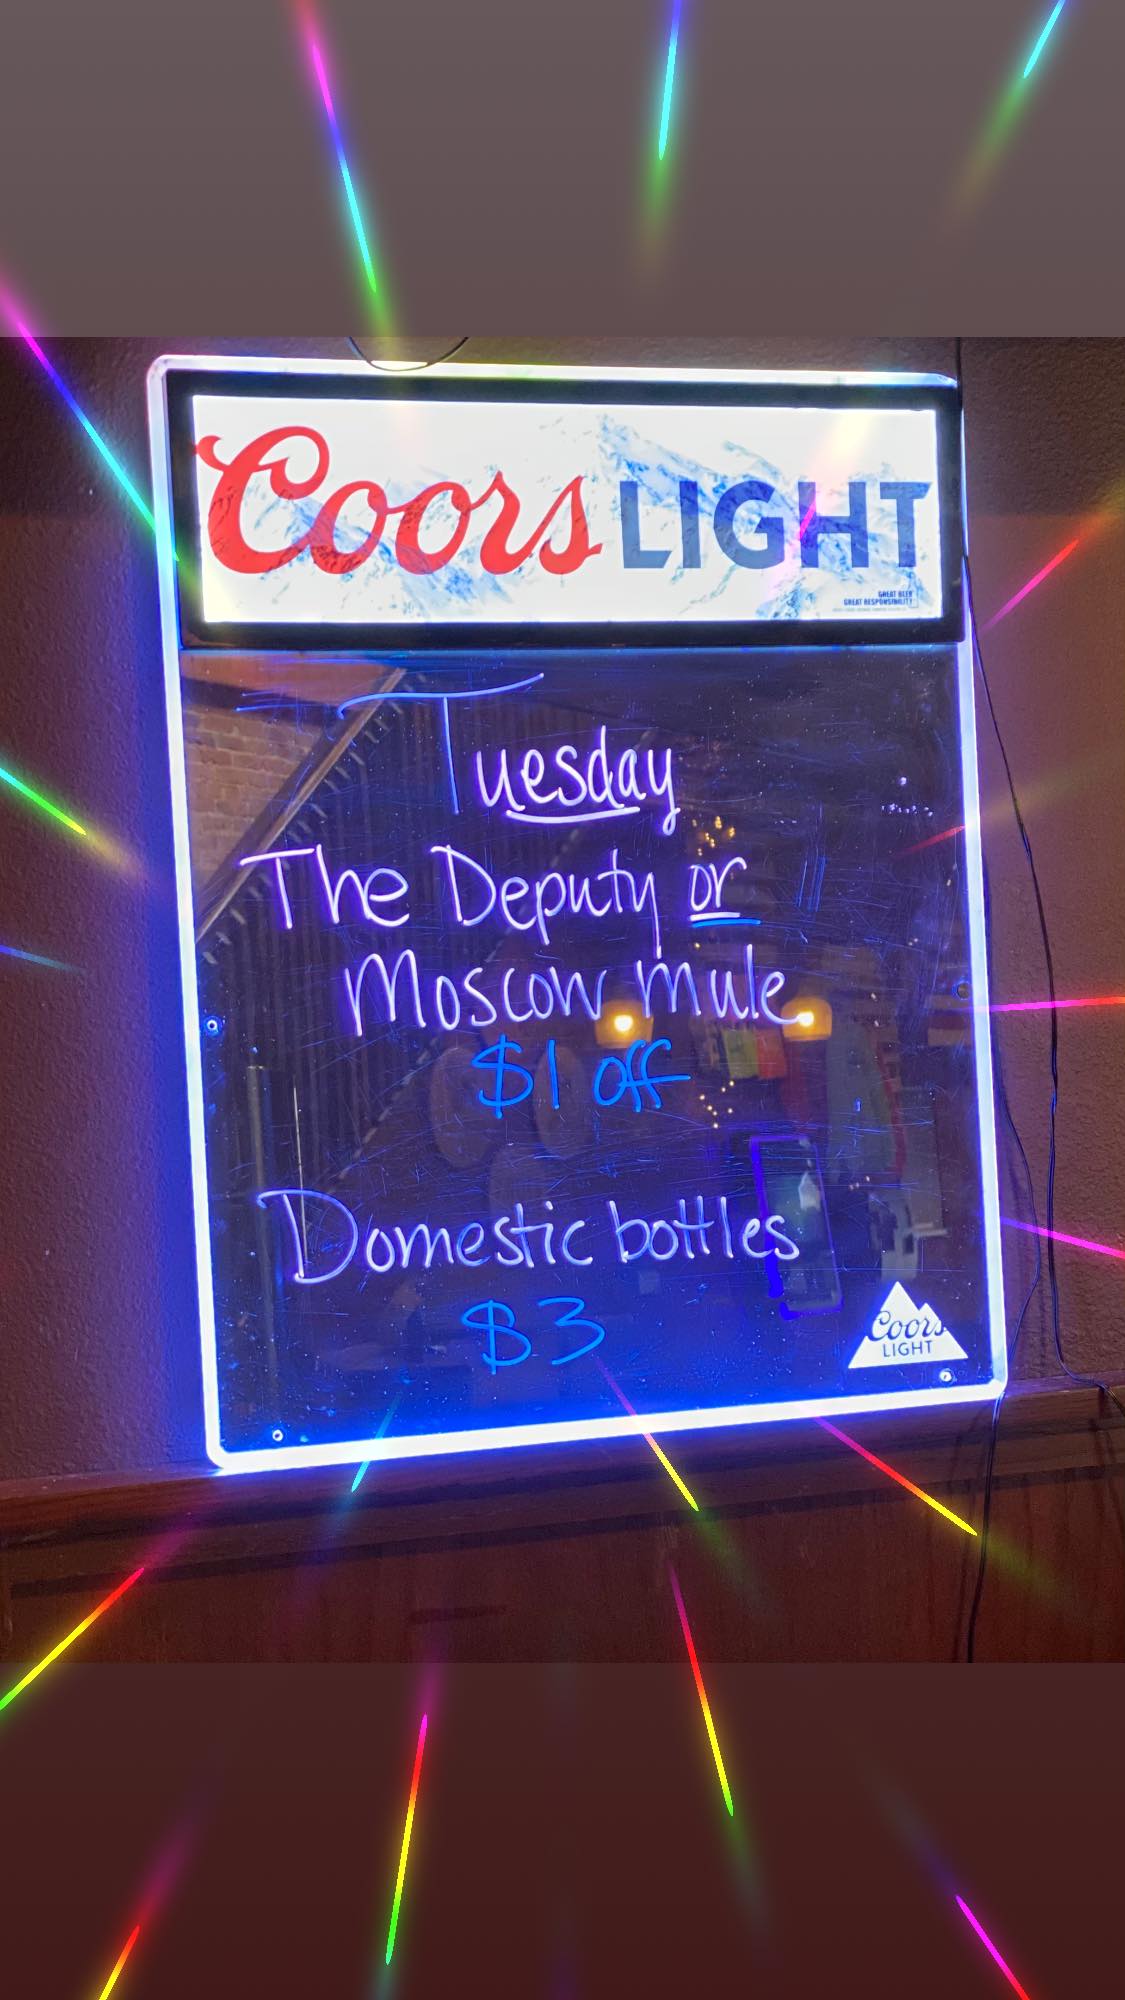 Coors LIGHT
GREAT BEER
GREAT RESPONSIBILITY
Tuesday
The Deputy or
Moscow mule
$1 off
Domestic bottles
$3
Coors
LIGHT